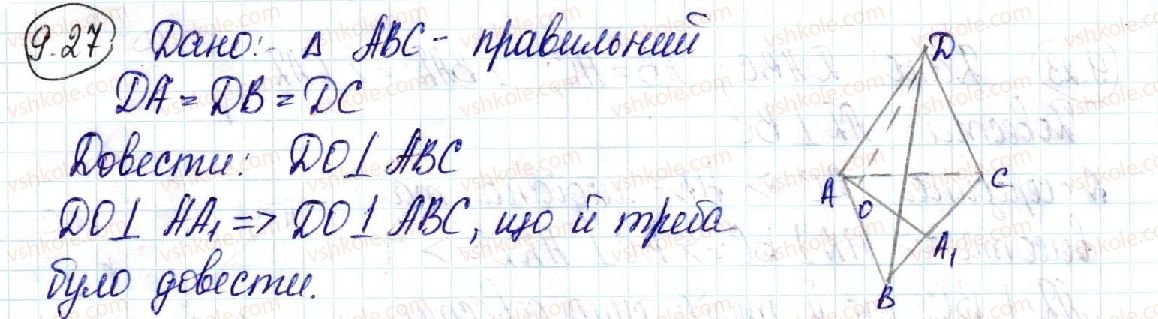 9.27 Дано: Δ ABC - правильний
DA = DB = DC
Довести: DO⊥ ABC
DO⊥ AA₁ => DO⊥ ABC, що й треба
було довести.
D
A
O
C
A₁
B
vshkole.com